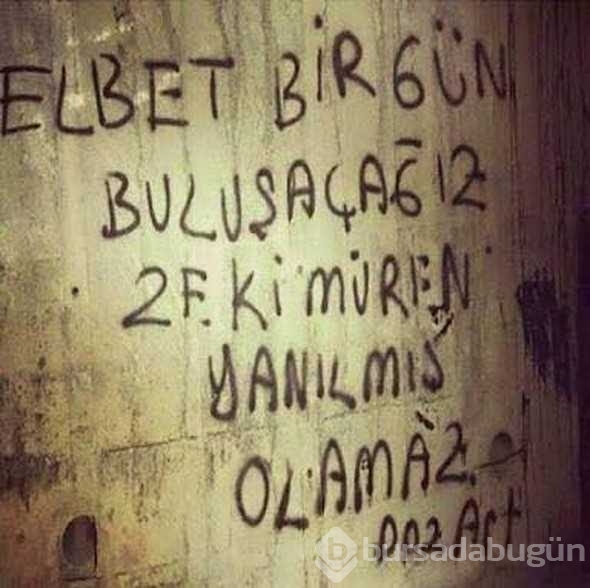 ELBET BİR GÜN
BULUŞAÇAĞIZ
ZEKİ MÜREN
YANILMIŞ
OLAMAZ.
Art
bursadabugün